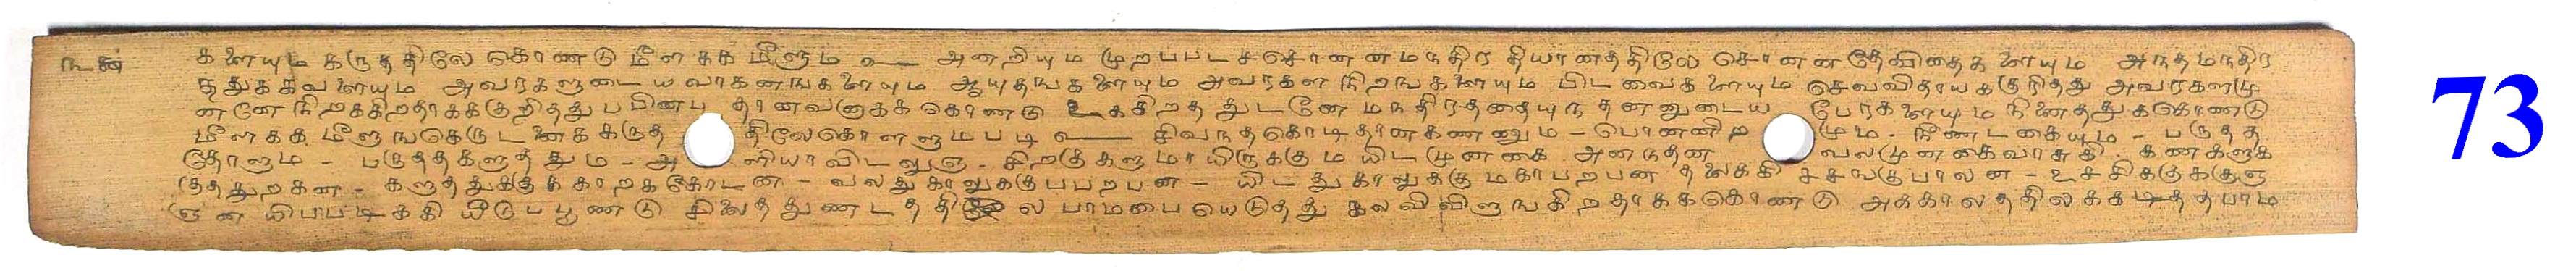 களையும கருத்திலே கொணடு மீளகக மீளும உ அனறியும முறபடச சொனன மநதிர தியானத்திலே சொனன தேவிதைகளையும அநத மநதிர
ததுககவளையும அவரகளுடைய வாகனஙகளையும ஆயுதஙகளையும அவரகள நிறஙகளையும பிடவைகளையும செவவிதாயக குரிதது அவரகளமு
னனே நிறக்கிறதாகக குறிதது பபினபு தானவனுகக கொணடு உககிறததுடனே மநதிரததையுந தனனுடைய பேரகளையும நினைதது ககொணடு
மீளகக மீளுஙகெருடனைக கருத திலேகொளளுமபடி உ சிவநதகொடிதானகணணும - பொனனிற மும - நீணடகையும - பருதத
தோளும - பருததகளுததும - அ ளியாவிடலுஞ - சிறகுகளுமாயிருககும யிடமுனகை அனநதன வலமுனகைவாசுகி - கணகளுக
தககன - களுததுககுக காறககோடன - வலதுகாலுககு பபறபன - யிடதுகாலுககு மகாபறபன தலைககி சசஙகுபாலன - உசசிககுககுளி
ஞன யிபபடிககி யீடுபபூணடு சிலைததுணடததி ல பாமபை யெடுதது கவவி விளுஙகிறதாகக கொணடு அககாலததில கடிததபாம
73